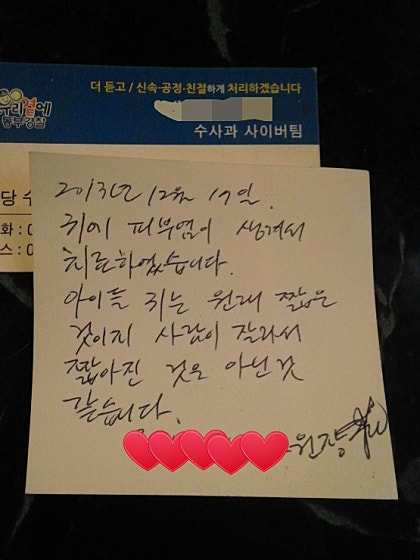 더 듣고 / 신속·공정·친절하게 처리하겠습니다
우리곁에
동부경찰
수사과 사이버팀
당 수
화 : 0
스 : 0
2013년 12월 19일.
귀에 피부염이 생겨서
치료하였습니다.
아이들 귀는 원래 짧은
것이지 사람이 잘라서
짧아진 것은 아닌것
같습니다.
원장